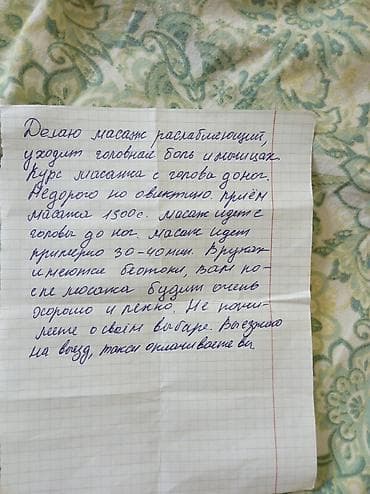 Делаю масаж раслабляющий,
уходит головная боль и мышцах
Курс масажа с голова до ног.
Недорого но эфективно. приём
масажа 1500с. масаж идет с
головы до ног масаж идет
примерно 30-40 мин. В руках
имеются биотоки, вам по-
сле масажа будит очень
хорошо и легко. Не пожи-
леете о своём выбаре. Выезжаю
на выезд, такси оплачиваете вы